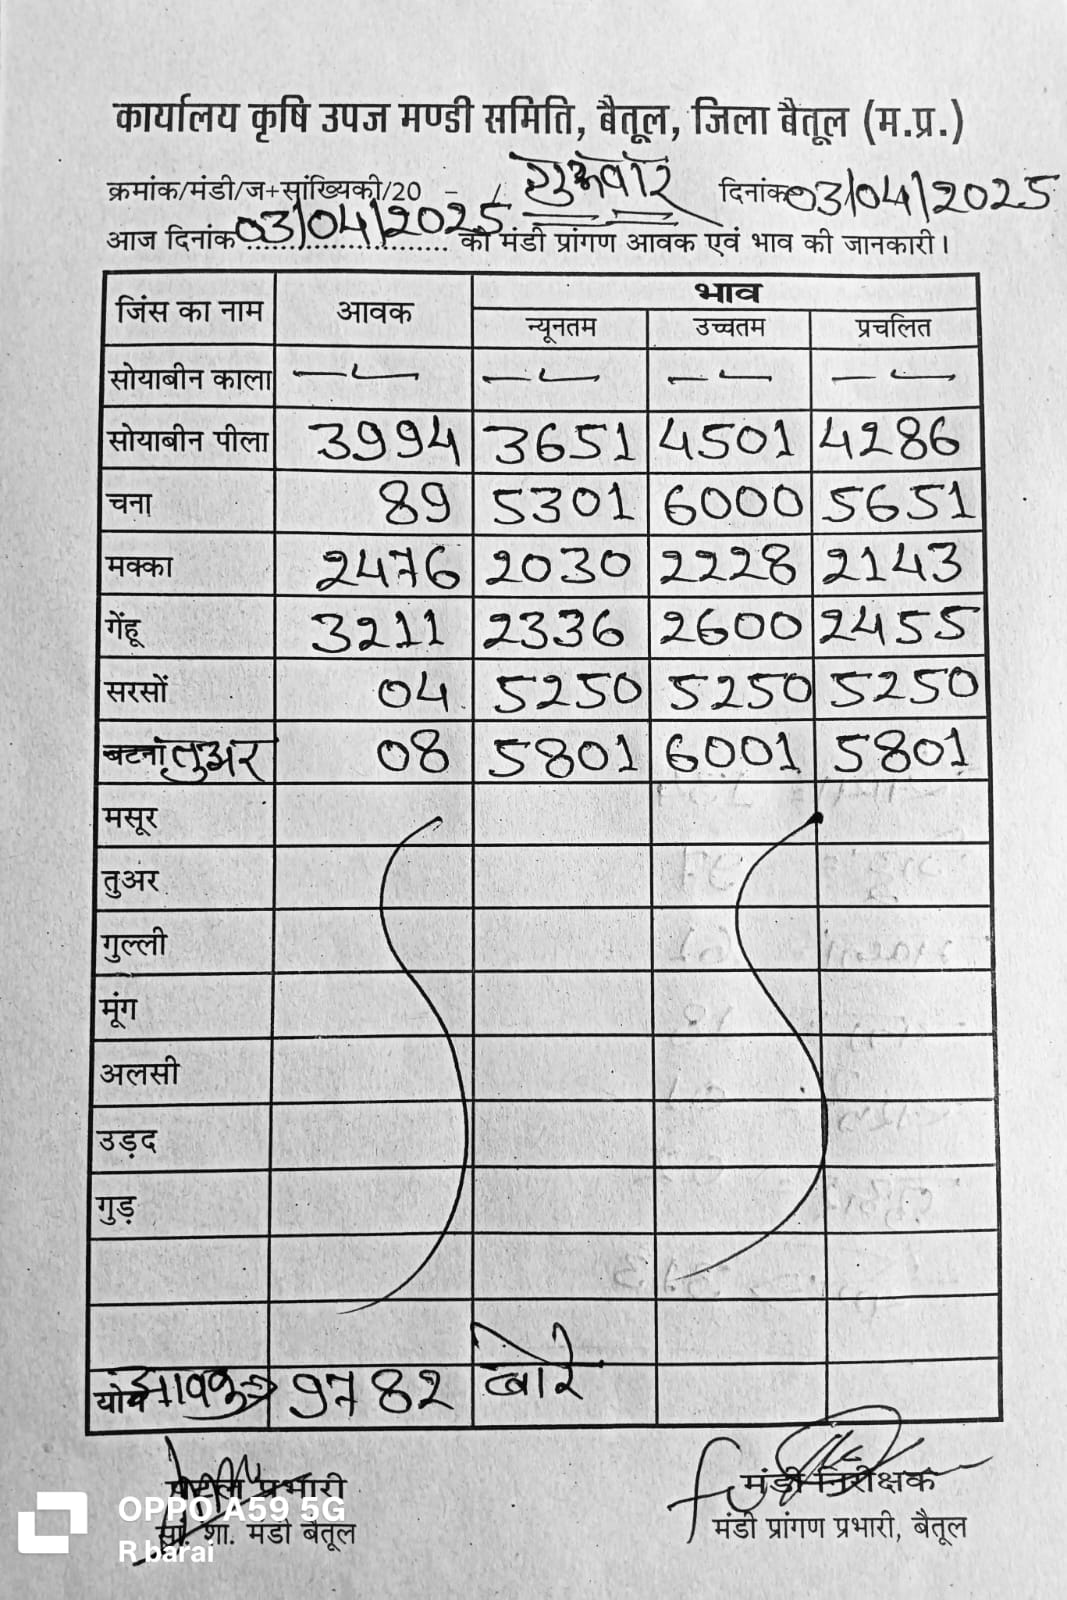 कार्यालय कृषि उपज मण्डी समिति, बैतूल, जिला बैतूल (म.प्र.)
क्रमांक/मंडी/ज+सांख्यिकी/20 - / शुक्रवार दिनांक 03/04/2025
आज दिनांक 03/04/2025 को मंडी प्रांगण आवक एवं भाव की जानकारी।
जिंस का नाम आवक भाव
न्यूनतम उच्चतम प्रचलित
सोयाबीन काला — — — — — — — —
सोयाबीन पीला 3994 3651 4501 4286
चना 89 5301 6000 5651
मक्का 2476 2030 2228 2143
गेंहू 3211 2336 2600 2455
सरसों 04 5250 5250 5250
बटना तुअर 08 5801 6001 5801
मसूर
तुअर
गुल्ली
मूंग
अलसी
उड़द
गुड़
योग आवक 9782 बोरे
प्रभारी मंडी निरीक्षक
सां. शा. मंडी बैतूल मंडी प्रांगण प्रभारी, बैतूल
OPPO A59 5G
R barai